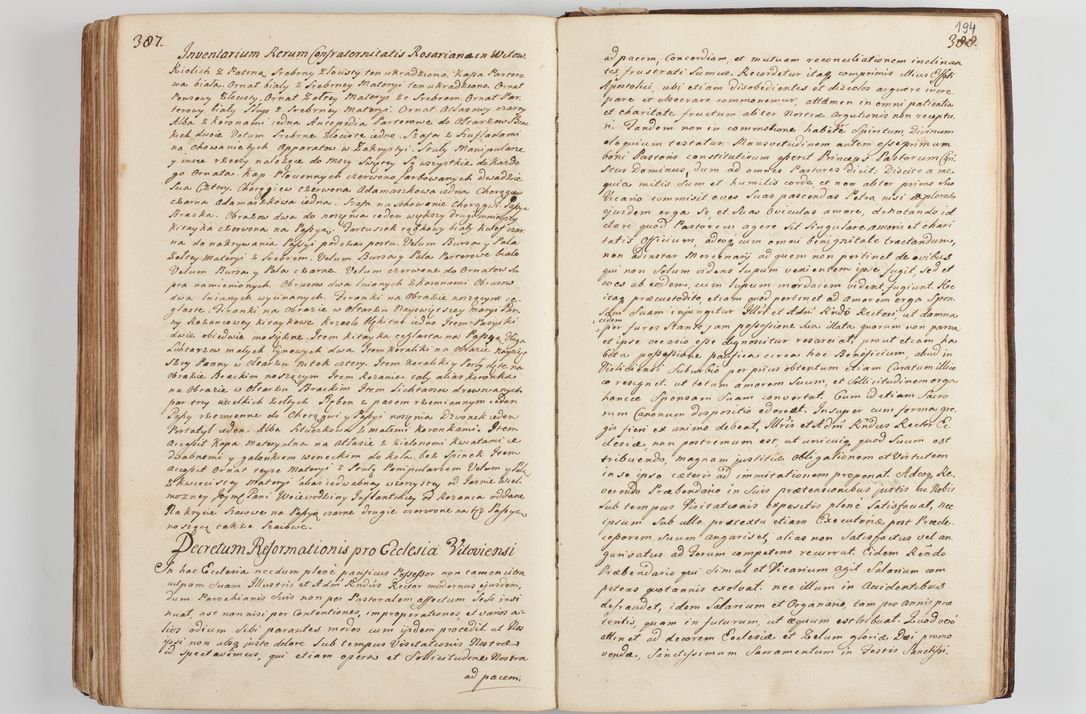 387.
Inventorium Rerum Confraternitatis Rosariana in Witow.
Kielich z Patena Srebrny złocisty ten ukradziono. Kapa Partero-
wa biała. Ornat biały z Srebrney Materyi ten ukradziono. Ornat
Ponsowy złocisty, Ornat żołtey Materyi ze Srebrem. Ornat Par-
terowy biały stuły z Srebrney Materyi. Ornat Atłasowy czarny
Alba z koronami iedna Antepedia Parterowe do Ołtarzow Bra-
ckich dwoie Votum Srebrne złociste iedno. Szafa z Szufladami
na chowanie tych Apparatow w Zakrystyi. Stuły Manipularze
y insze rzeczy należące do Mszy Swętey Są wszystkie do każde-
go Ornatu. Kap Płociennych czerwono farbowanych dwadzie-
scia Cztery. Chorągiew czerwona Adamaszkowa iedna Chorągiew
czarna Adamaszkowa iedna. Szafa na schowanie Chorągwi.
Bracka. Obrazow dwa do noszenia ieden większy drugi mnieyszy
kitayka czerwona na Passyą. Fartuszek rąbkowy biały
na do nakrywania Passyi podczas postu. Velum Bursa y Pala
żołtey Materyi z Srebrem. Velum Bursa y Pala Parterowe białe
Velum Bursa y Pala czarne. Velum czerwone do Ornatow Su-
pra namienionych. Obrusow dwa lnianych z koronami Obrusow
dwa lnianych wycinanych. Firanki na Obrazie
Firanki na Obrazie w Ołtarzu Nayswiętszey Maryi Pan-
ny Rożancowey kitaykowe. Krzesło błękitne iedno Item
dwie obiedwie mosiężne. Item kitayka ceglasta na Passyą
Lichtarzow małych cynowych dwa. Item koraliki na Obrazie Nayswię-
tszey Panny w Ołtarzu nitek cztery. Item koraliki y
Obrazie Brackim noszącym Item Rożaniec cały, alias koronka
na Obrazie w Ołtarzu Brackim Item Lichtarzow
par trzy wielkich żołtych z pasem rzemiennym ieden
Pasy rzemienne do Chorągwi y Passyi noszenia Dzwonek ieden
Portatyl ieden. Alba Szwiezkowa z małemi koronkami. Item
Accessit Kapa Materyalna na Atłasie z Zielonemi kwiatami
y galonkiem wenieckim do koła bez Spinek Item
Accessit Ornat teyze Materyi z Stułą Manipularzem Velum y
z kwiecistey Materyi
możney Jeymsci Pani Woiewodziny Inflantskiey od Rożanca oddane
Nakrycie Szasowe na Passyą czarne drugie czerwone na tęż Passyą
noszącą także Szasowe.
Decretum Reformationis pro Ecclesia Vitoviensi
In hac Ecclesia necdum plene pacificus Possessor non tamen citra
culpam suam Illustris et Adm Rndus Rector modernus ejusdem,
dum Parochianis suis non per Pastoralem affectum sese insi-
nuat, ast non nisi per Contentiones, improperationes, et varios a-
lios odium sibi parantes modos cum iisdem procedit ut Nos
ipsi non absq justo dolore sub tempus Visitationis Nostræ
spectavimus, qui etiam opera et sollicitudine Nostra
ad pacem.
194
388.
ad pacem, Concordiam et mutuam reconciliationem inclinan-
tes, frustrati sumus. Recordetur itaq comprimis illius Effati
Apostolici, ubi etiam disobedientes et discolos arguere incre-
pare et obsecrare commonemur, attamen in omni patientia
et charitate fructum aliter Nostræ Argutionis non receptu-
ri. Tandem non in commotione habete Spiritum, Divinum
eloquium testatur. Mansvetudinem autem esse primum
boni Pastoris constitutivum asserit Princeps Pastorum Chri-
stus Dominus, dum ad omnes Pastores dicit: Discite a me
quia mitis sum et humilis corde, et non aliter primo suo
Vicario commisit oves suas pascendas Petro, nisi explorato
ejusdem erga se, et suas Oviculas amore, denotando id
clare quod Pastorem agere sit singulare amoris et chari-
tatis Officium, adeoq cum omni benignitate tractandum,
non ad instar Mercenarij ad quem non pertinet de ovibus
qui non solum videns Lupum venientem ipse fugit, sed et
oves ab eodem, cum lupum mordacem vident fugiunt. Hoc
itaq præcustodito, etiam quod pertinet ad amorem erga Spon-
sam suam injungitur Illri et Adm Rndo Rectori, ut damna
eidem
per fures stante jam possessione sua illata quorum non parva
et ipse occasio esse dignoscitur resarciat, prout etiam ha-
bita possessione pacifica circa hoc Beneficium, aliud in
Suburbio per prius obtentum etiam Curatum illico
resignet, ut totum amorem suum, et sollicitudinem erga
hancce Sponsam suam convertat. Cum id etiam Sacro
rum Canonum dispositio edoceat. Insuper cum forma gre-
gis fieri ex animo debeat, Illris et Adm Rndus Rector Ec-
clesiæ non postremum est, ut unicuiq quod suum est
tribuendo, magnam justitiæ Obligationem et Virtutem
in se ipso cæteris ad immitationem proponat. Adeoq Re-
verendo Præbendario in suis prætensionibus justis se Nobis
sub tempus Visitationis expositis plene satisfaciat, nec
ipsum sub ullo prætextu etiam Executoriæ post Præde-
cessorem suum angariset, alias non satisfactus vel an-
garisatus ad Forum competens recurrat. Eidem Rendo
Præbendario qui simul et Vicarium agit Salarium com-
petens quotannis exolvat. nec illum in Accidentibus
defraudet, idem Salarium et Organario, tam pro annis præ-
tentis, quam in futurum, ut æquum est tribuat. Quod vero
attinet ad decorem Ecclesiæ et Zelum gloriæ Dei promo
vendæ, Sanctissimum Sacramentum in Festis Sanctissi-